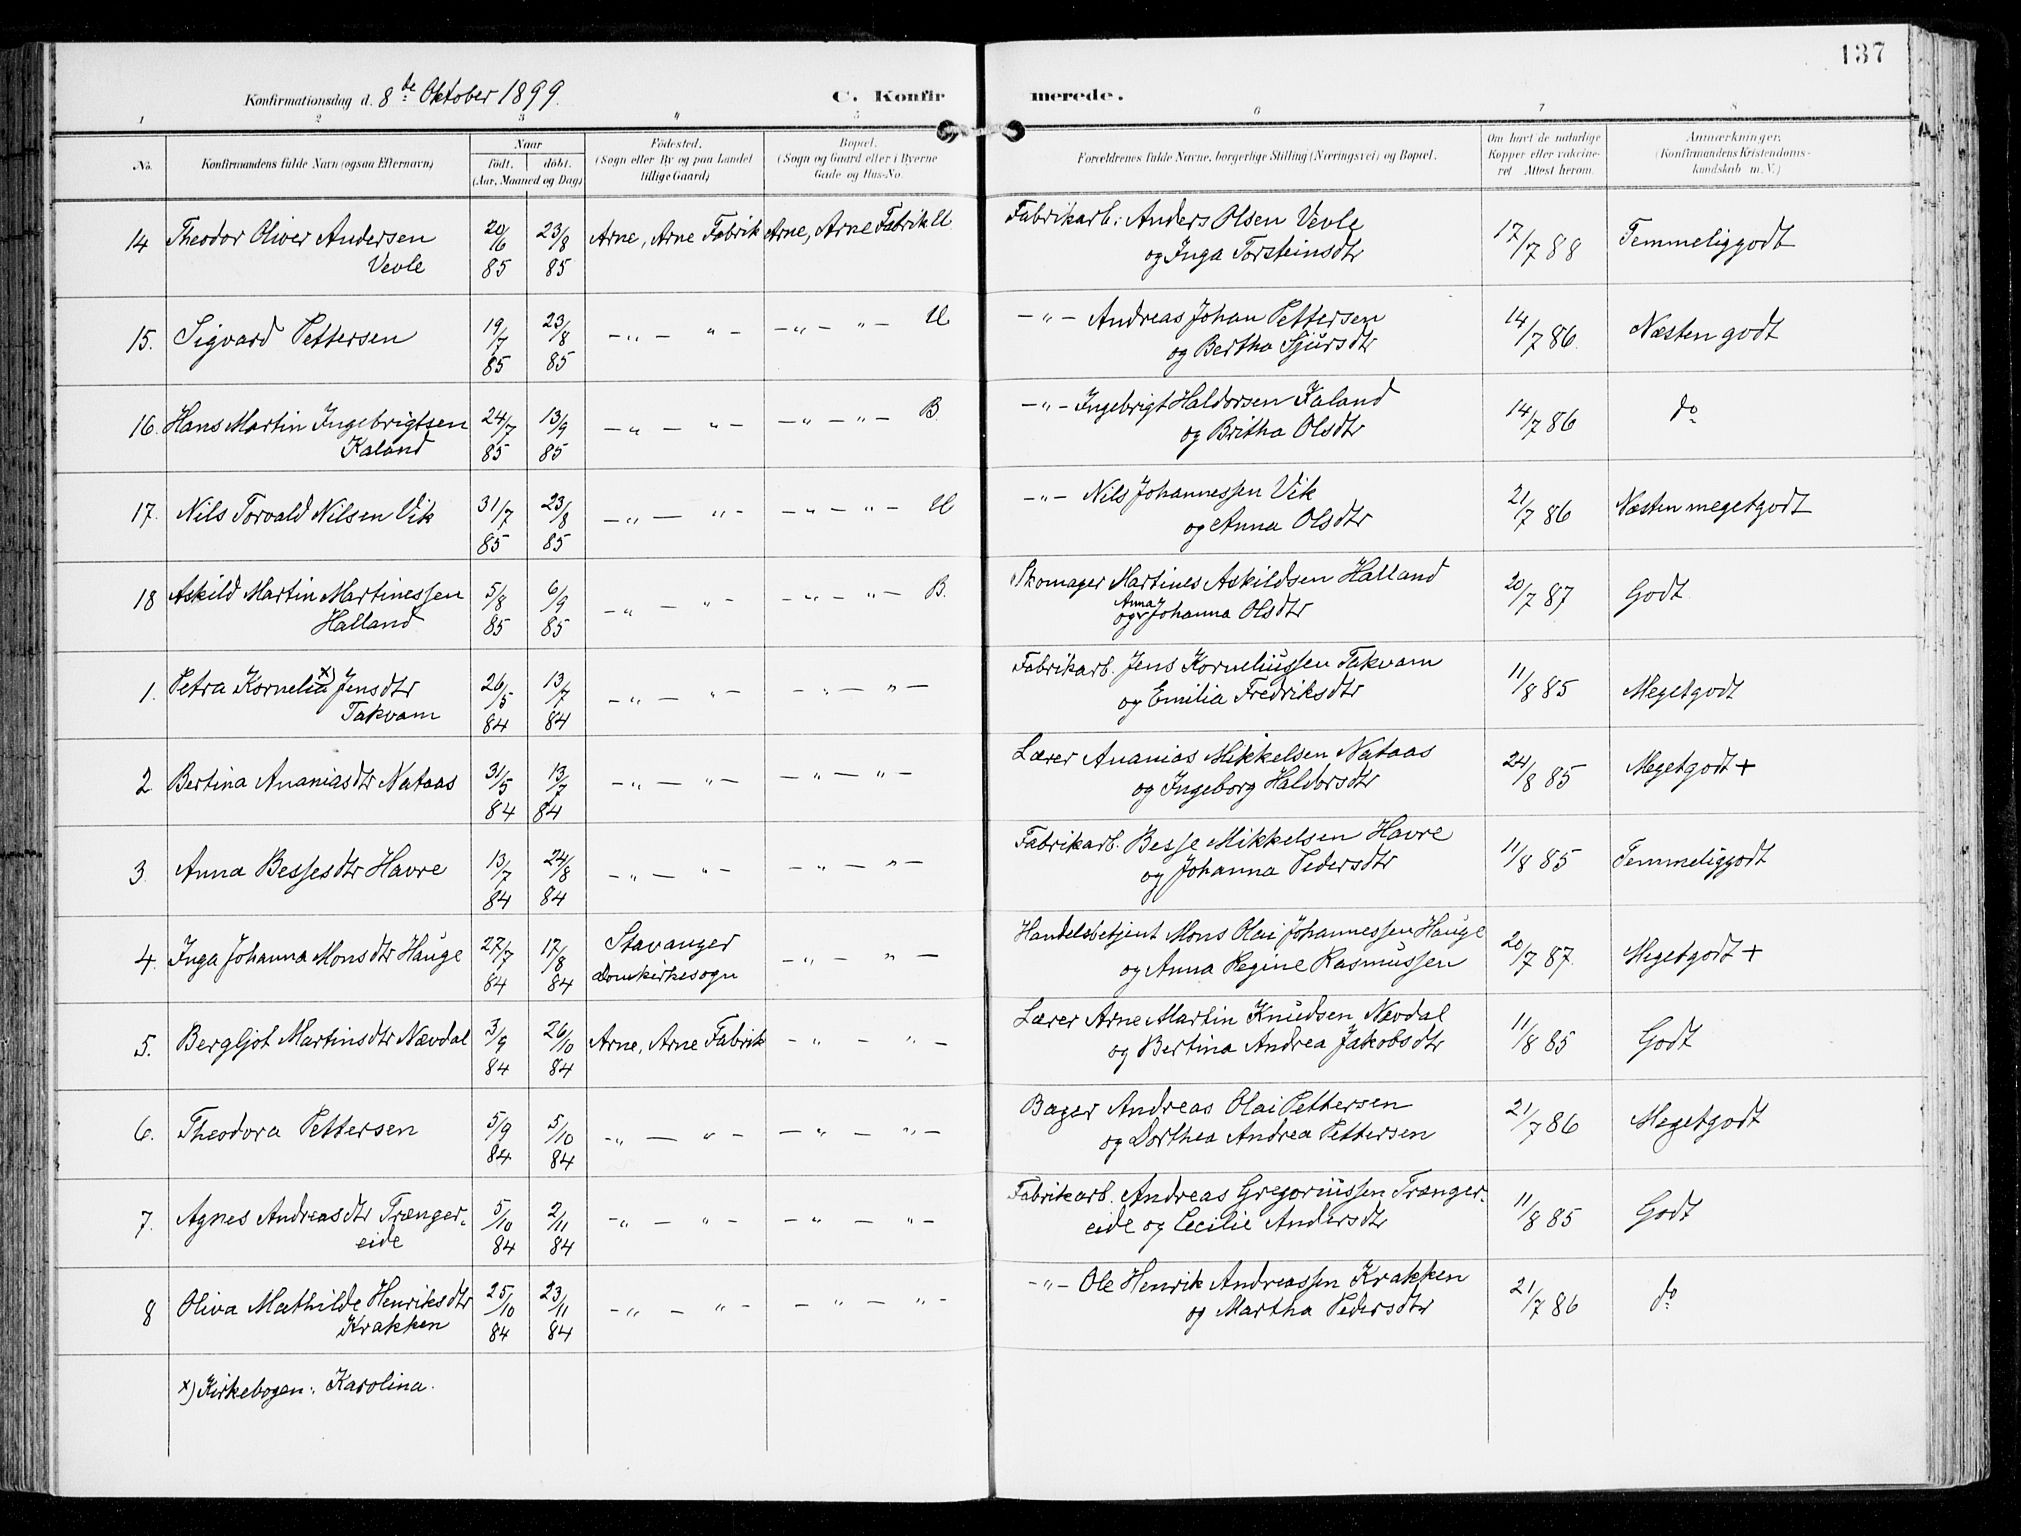 137
Konfirmationsdag d. 8de Oktober 1899.
C. Konfirmerede.
1 2 3 4 5 6 7 8
No. Konfirmandens fulde Navn (ogsaa Efternavn) Naar født. døbt. (Aar, Maaned og Dag) Fødested. (Sogn eller By og paa Landet tillige Gaard) Bopæl. (Sogn og Gaard eller i Byerne Gade og Hus-No. Forældrenes fulde Navne, borgerlige Stilling (Næringsvei) og Bopæl. Om havt de naturlige Kopper eller vakcineret. Attest herom. Anmærkninger. (Konfirmandens Kristendomskundskab m. V.)
14 Theodor Oliver Andersen Vevle 20/6 85 23/8 85 Arne, Arne Fabrik Arne, Arne Fabrik U. Fabrikarb: Anders Olsen Vevle og Inga Torsteinsdtr 17/7 88 Temmeliggodt
15. Sigvard Pettersen 19/7 85 23/8 85 -"- "- -"- "- U. -"- Andreas Johan Pettersen og Bertha Sjursdtr 14/7 86. Næsten godt
16. Hans Martin Ingebrigtsen Kaland 24/7 85 13/9 85 -"- "- -"- "- B. -"- Ingebrigt Haldorsen Kaland og Britha Olsdtr 14/7 86 do
17. Nils Torvald Nilsen Vik 31/7 85 23/8 85 -"- "- -"- "- U -"- Nils Johannessen Vik og Anna Olsdtr 21/7 86 Næsten megetgodt
18 Askild Martin Martinessen Halland 5/8 85 6/9 85 -"- "- -"- "- B. Skomager Martines Askildsen Halland og Anna Johanna Olsdtr 20/7 87 Godt.
1. Petra Kornelia x) Jensdtr Takvam 26/5 84 13/7 84 -"- "- -"- "- Fabrikarb. Jens Korneliussen Takvam og Emilia Fredriksdtr 11/8 85 Megetgodt
2 Bertina Ananiasdtr Nataas 31/5 84 13/7 84 -"- "- -"- "- Lærer Ananias Mikkelsen Nataas og Ingeborg Haldorsdtr 24/8 85 Megetgodt +
3. Anna Bessesdtr Havre 13/7 84 24/8 84 -"- "- -"- "- Fabrikarb. Besse Mikkelsen Havre og Johanna Pedersdtr 11/8 85 Temmeliggodt
4. Inga Johanna Monsdtr Hauge 27/7 84 17/8 84 Stavanger Domkirkesogn -"- "- Handelsbetjent Mons Olai Johannessen Hauge og Anna Regine Rasmussen 20/7 87. Megetgodt +
5. Bergljot Martinsdtr Nævdal 3/9 84 26/10 84 Arne, Arne Fabrik -"- "- Lærer Arne Martin Knudsen Nevdal og Bertina Andrea Jakobsdtr 11/8 85 Godt
6. Theodora Pettersen 5/9 84 5/10 84 -"- "- -"- "- Bager Andreas Olai Pettersen og Dorthea Andrea Pettersen 21/7 86 Megetgodt
7. Agnes Andreasdtr Trængereide 5/10 84 2/11 84 -"- "- -"- "- Fabrikarb. Andreas Gregoriussen Trængereide og Cecilie Andersdtr 11/8 85 Godt
8 Oliva Mathilde Henriksdtr Krakken 25/10 84 23/11 84 -"- "- -"- "- -"- Ole Henrik Andreassen Krakken og Martha Pedersdtr 21/7 86 do
x) Kirkebogen: Karolina.